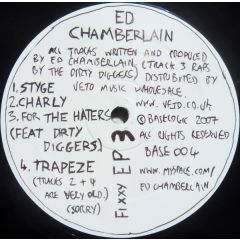 ED
CHAMBERLAIN
ALL TRACKS WRITTEN AND PRODUCED
BY ED CHAMBERLAIN, (TRACK 3 RAPS
BY THE DIRTY DIGGERS) DISTRIBUTED BY
VETO MUSIC WHOLESALE.
1. STYGE
2. CHARLY
3. FOR THE HATERS
(FEAT DIRTY
DIGGERS)
4. TRAPEZE
(TRACKS 2 + 4
ARE VERY OLD.)
(SORRY)
FIXXY EP 3
WWW.VETO.CO.UK
© BASELOGIC 2007
ALL RIGHTS RESERVED
BASE 004
WWW.MYSPACE.COM/
ED CHAMBERLAIN